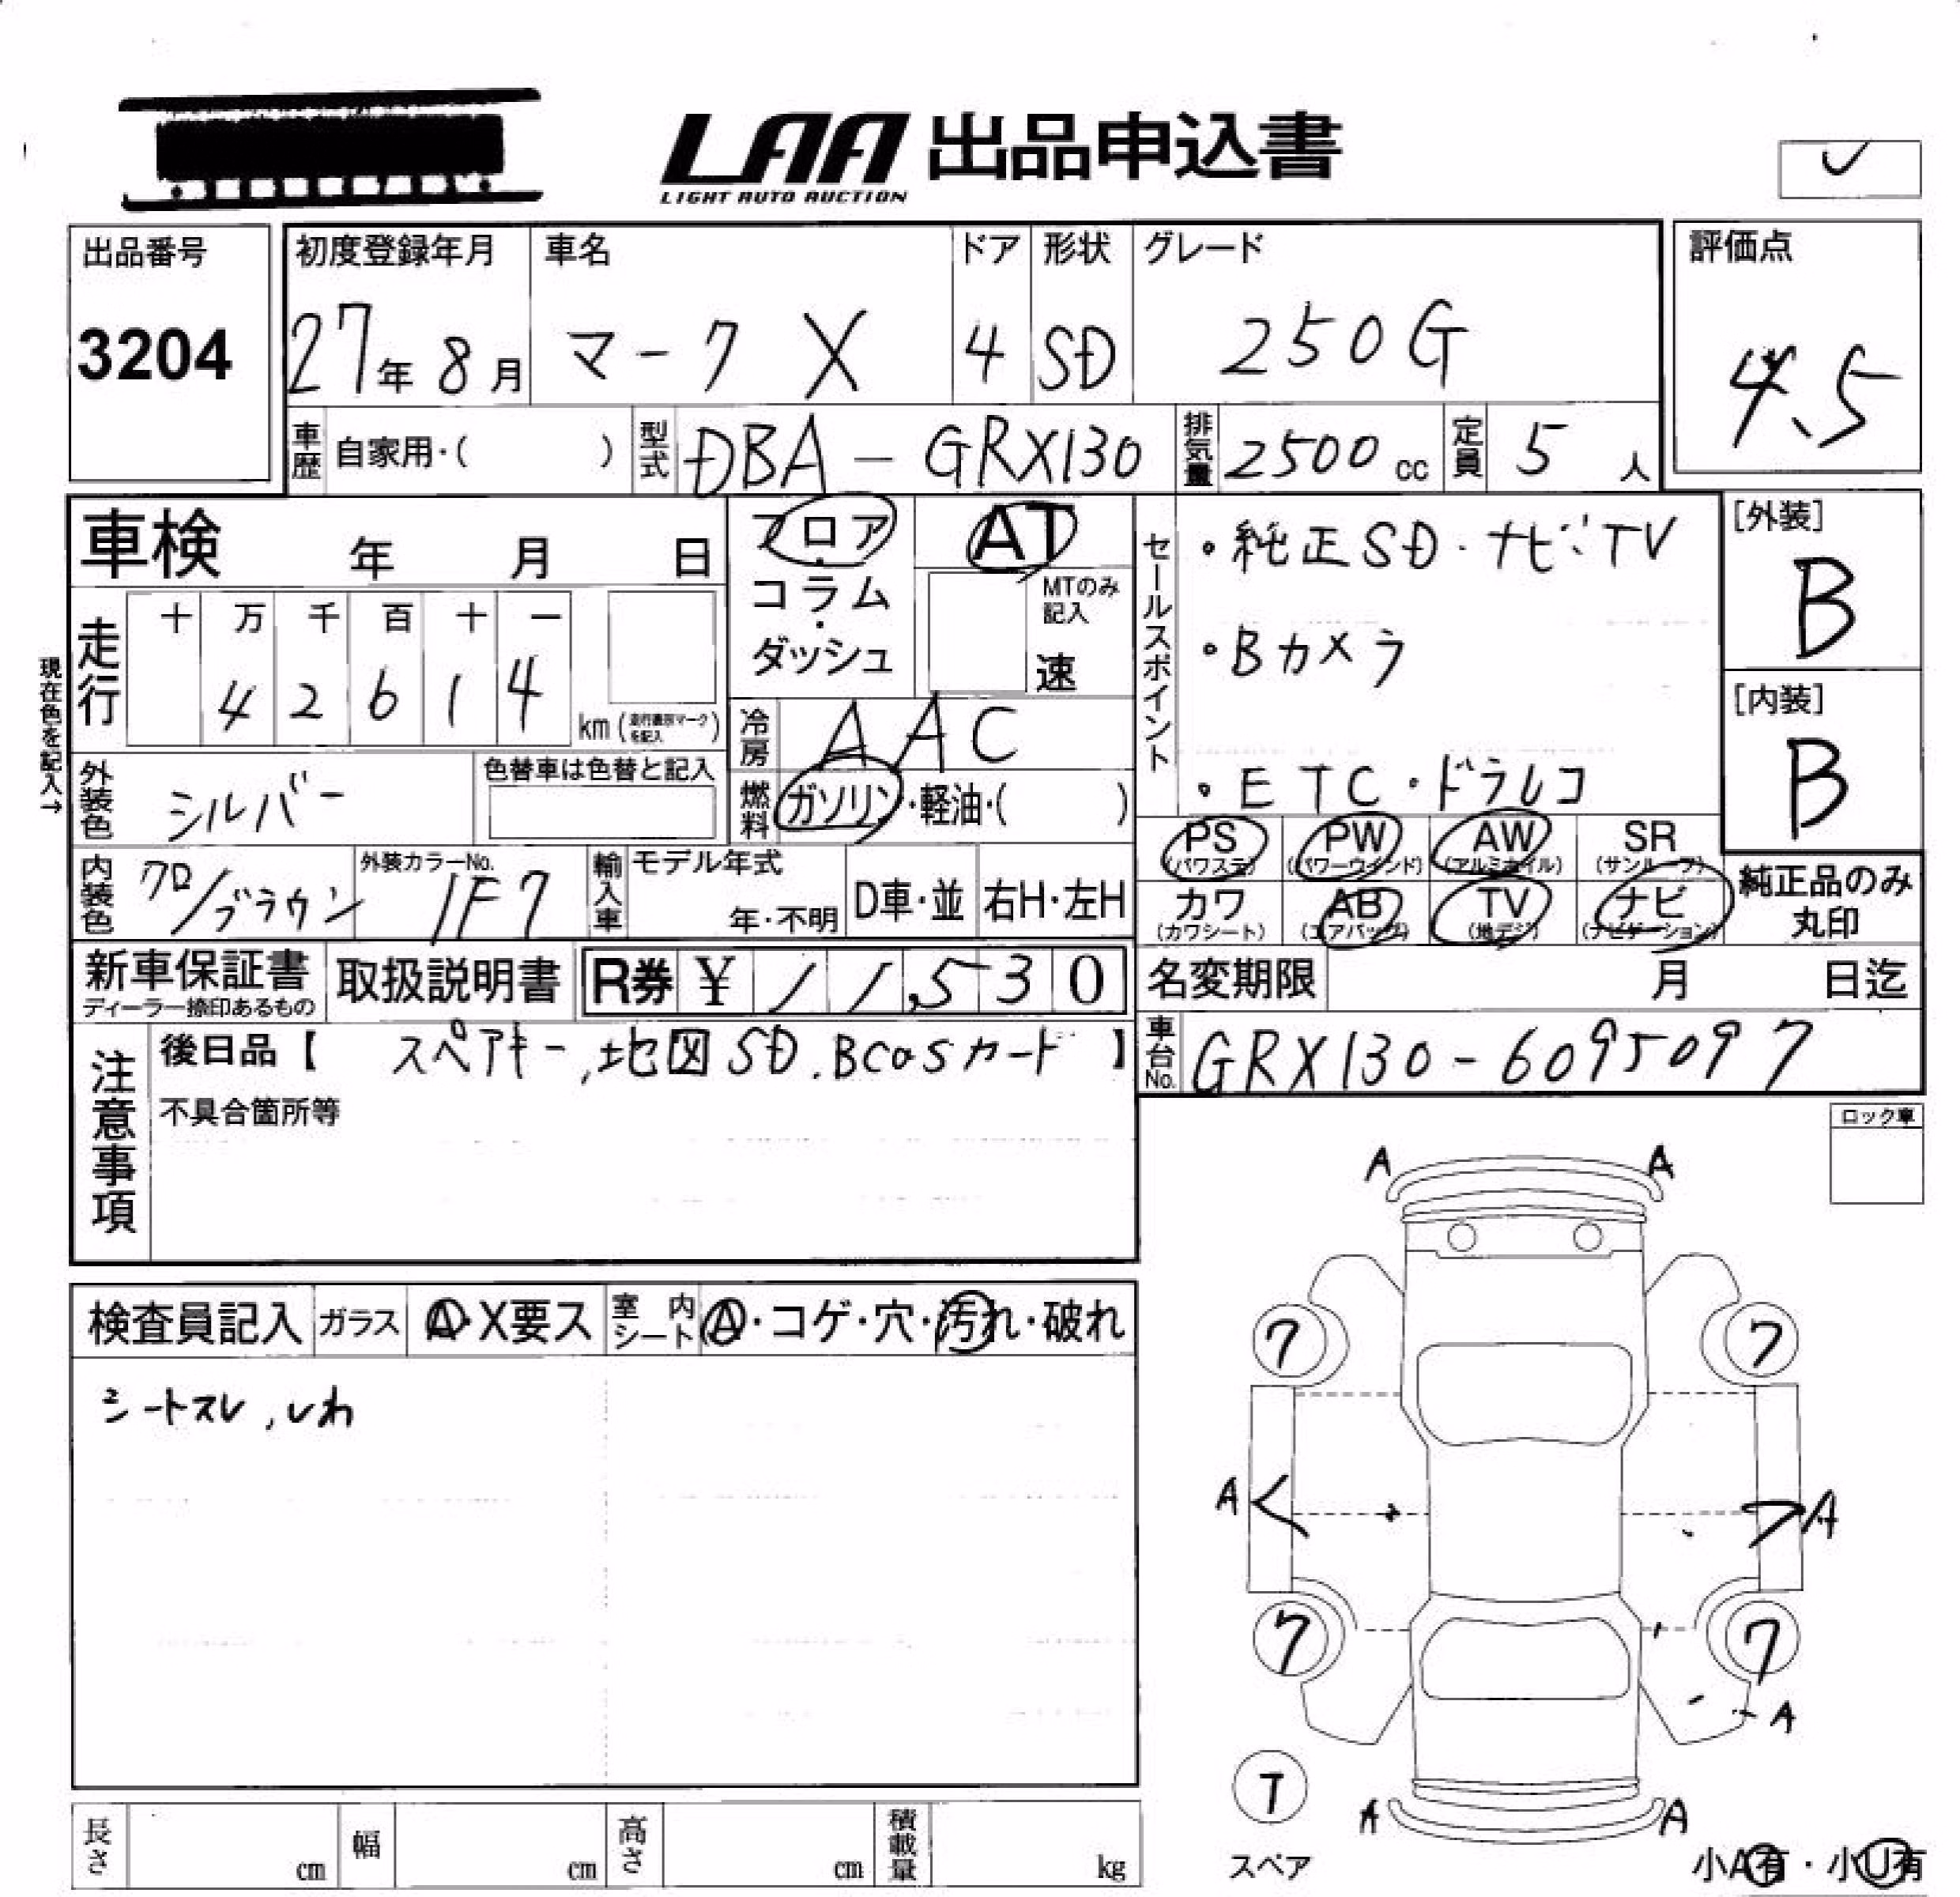 LAA 出品申込書
LIGHT AUTO AUCTION
出品番号
3204
初度登録年月
27年 8月
車名
マーク X
ドア
4
形状
SD
グレード
250G
評価点
4.5
車歴 自家用・( )
型式 DBA-GRX130
排気量 2500 cc
定員 5 人
車検 年 月 日
フロア・コラム・ダッシュ
AT
MTのみ記入
速
セールスポイント
・純正SD・ナビ・TV
・Bカメラ
・ETC・ドラレコ
[外装]
B
[内装]
B
現在色を記入→
走行
十 万 千 百 十 一
4 2 6 1 4
km (走行表示マークを記入)
冷房 AAC
燃料 ガソリン・軽油・( )
外装色 シルバー
色替車は色替と記入
内装色 クロ/ブラウン
外装カラーNo.
1F7
輸入車
モデル年式
年・不明
D車・並
右H・左H
PS (パワステ)
PW (パワーウインド)
AW (アルミホイル)
SR (サンルーフ)
カワ (カワシート)
AB (エアバッグ)
TV (地デジ)
ナビ (ナビゲーション)
純正品のみ
丸印
新車保証書
ディーラー捺印あるもの
取扱説明書
R券 ¥ 11,530
名変期限 月 日迄
注意事項
後日品【 スペアキー,地図SD.BCasカード 】
不具合箇所等
車台No. GRX130-6095097
ロック車
検査員記入
ガラス A・X要ス
室内シート A・コゲ・穴・汚れ・破れ
シートスレ,しわ
A A
7 7
A A
7 7
A
T
スペア
A A
小A有・小U有
長さ cm
幅 cm
高さ cm
積載量 kg